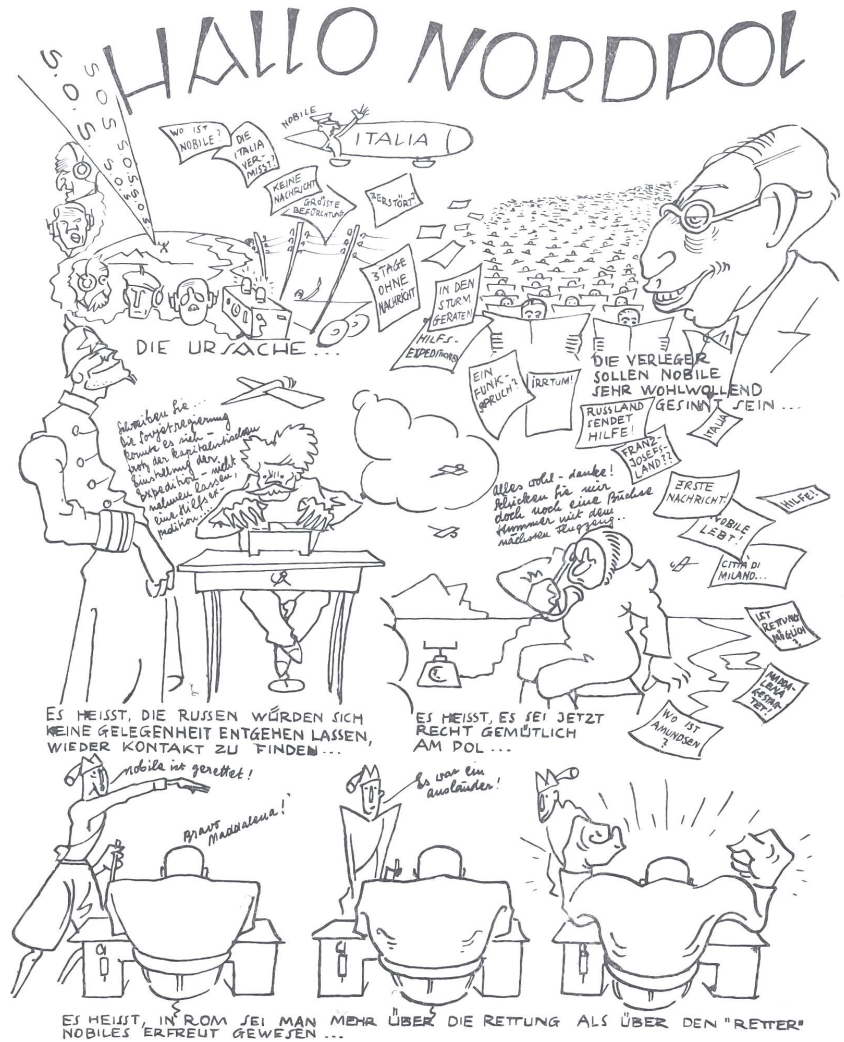 HALLO NORDPOL
S.O.S
SOS
SOS
SOS
SOS
SOS
NOBILE
ITALIA
WO IST
NOBILE?
DIE
ITALIA
VER-
MISST?
KEINE
NACHRICHT
GRÖSSTE
BEFÜRCHTUNG
ZERSTÖRT?
3 TAGE
OHNE
NACHRICHT
IN DEN
STURM
GERATEN
HILFS-
EXPEDITIONEN
DIE URSACHE...
EIN
FUNK-
SPRUCH?
IRRTUM!
DIE VERLEGER
SOLLEN NOBILE
SEHR WOHLWOLLEND
GESINNT SEIN...
RUSSLAND
SENDET
HILFE!
ITALIA
FRANZ-
JOSEFS-
LAND??
ERSTE
NACHRICHT!
HILFE!
NOBILE
LEBT!
CITTÀ DI
MILANO...
IST
RETTUNG
MÖGLICH
?
MADDA-
LENA
GESTAR-
TET!
WO IST
AMUNDSEN
?
Schreiben Sie...
Die Sovjetregierung
konnte es sich -
trotz der kapitalistischen
Einstellung der
Expedition - nicht
nehmen lassen,
eine Hilfsex-
pedition....
Alles wohl - danke!
Schicken Sie mir
doch noch eine Büchse
Hummer mit dem
nächsten Flugzeug..
ES HEISST, DIE RUSSEN WÜRDEN SICH
KEINE GELEGENHEIT ENTGEHEN LASSEN,
WIEDER KONTAKT ZU FINDEN...
ES HEISST, ES SEI JETZT
RECHT GEMÜTLICH
AM POL...
Nobile ist gerettet!
Bravo
Maddalena!
Es war ein
Ausländer!
ES HEISST, IN ROM SEI MAN MEHR ÜBER DIE RETTUNG ALS ÜBER DEN "RETTER"
NOBILES ERFREUT GEWESEN...